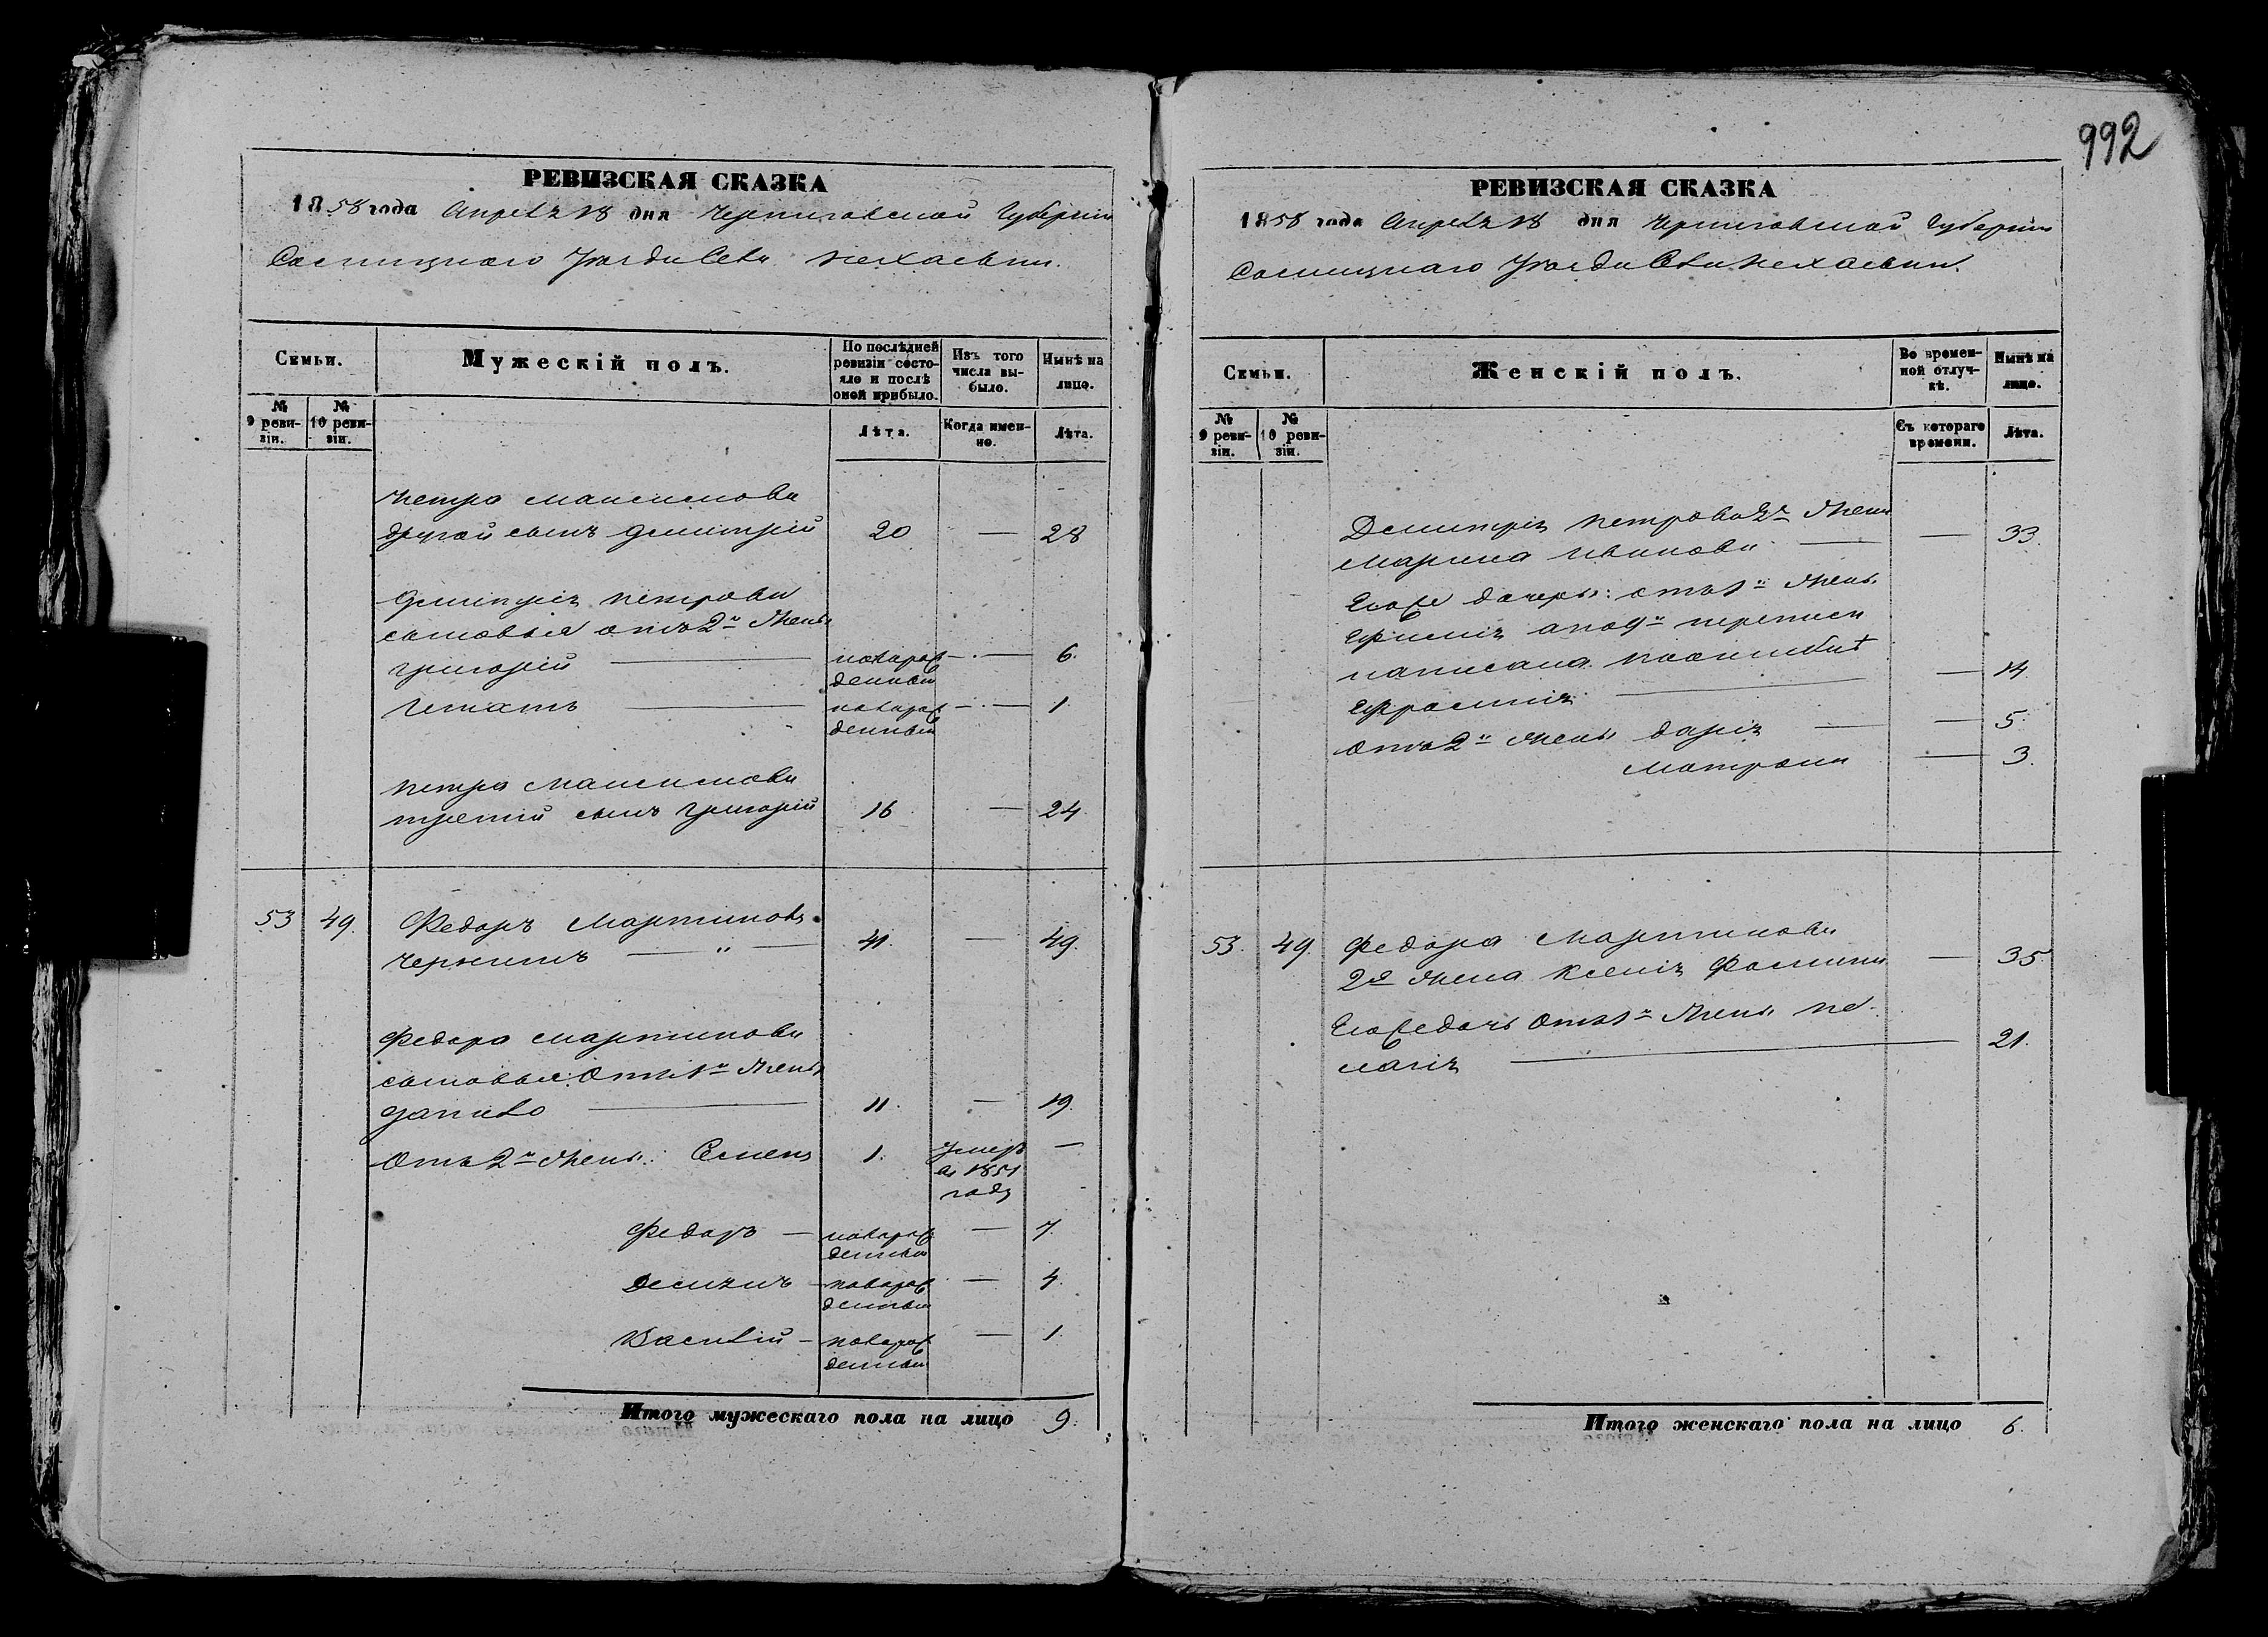 992
РЕВИЗСКАЯ СКАЗКА
1858 года Апреля 18 дня Черниговской Губернии
Сосницкаго Уезда Села Нехаевки.
Семьи.
Мужескій полъ.
По послѣдней ревизіи состояло и послѣ оной прибыло.
Изъ того числа выбыло.
Нынѣ на лицо.
№ 9 ревизіи.
№ 10 ревизіи.
Лѣта.
Когда именно.
Лѣта.
Петра Максимова
другой сынъ Дмитрій 20 — 28
Дмитрія Петрова
сыновья отъ 2й Жены
Григорій — новорожденный — 6.
Игнатъ — новорожденный — 1
Петра Максимова
третій сынъ Григорій 16 — 24
53 49. Федоръ Мартиновъ
Чернишъ — " — 41. — 49.
Федора Мартинова
сыновья: Отъ 1й Жены
Данило — 11. — 19.
Отъ 2й Жены: Семенъ 1. Умеръ в 1851 году —
Федоръ — новорожденный — 7.
Демянъ — новорожденный — 4.
Василій — новорожденный — 1.
Итого мужескаго пола на лицо 9.
РЕВИЗСКАЯ СКАЗКА
1858 года Апреля 18 дня Черниговской Губернии
Сосницкаго Уезда Села Нехаевки.
Семьи.
Женскій полъ.
Во временной отлучкѣ.
Нынѣ на лицо.
№ 9 ревизіи.
№ 10 ревизіи.
Съ котораго времени.
Лѣта.
Дмитрія Петрова 2я Жена
Марина Иванова — — 33.
Егоже дочери: отъ 1й Жены
Ефимія а по 9й переписи
написана по ошибкѣ
Ефросинія — — 14
Отъ 2й Жены Дарія — — 5.
Матрона — 3.
53. 49. Федора Мартинова
2я Жена Ксенія Фомина — 35.
Егоже дочь Отъ 1й Жены Пе-
лагія — 21.
Итого женскаго пола на лицо 6.